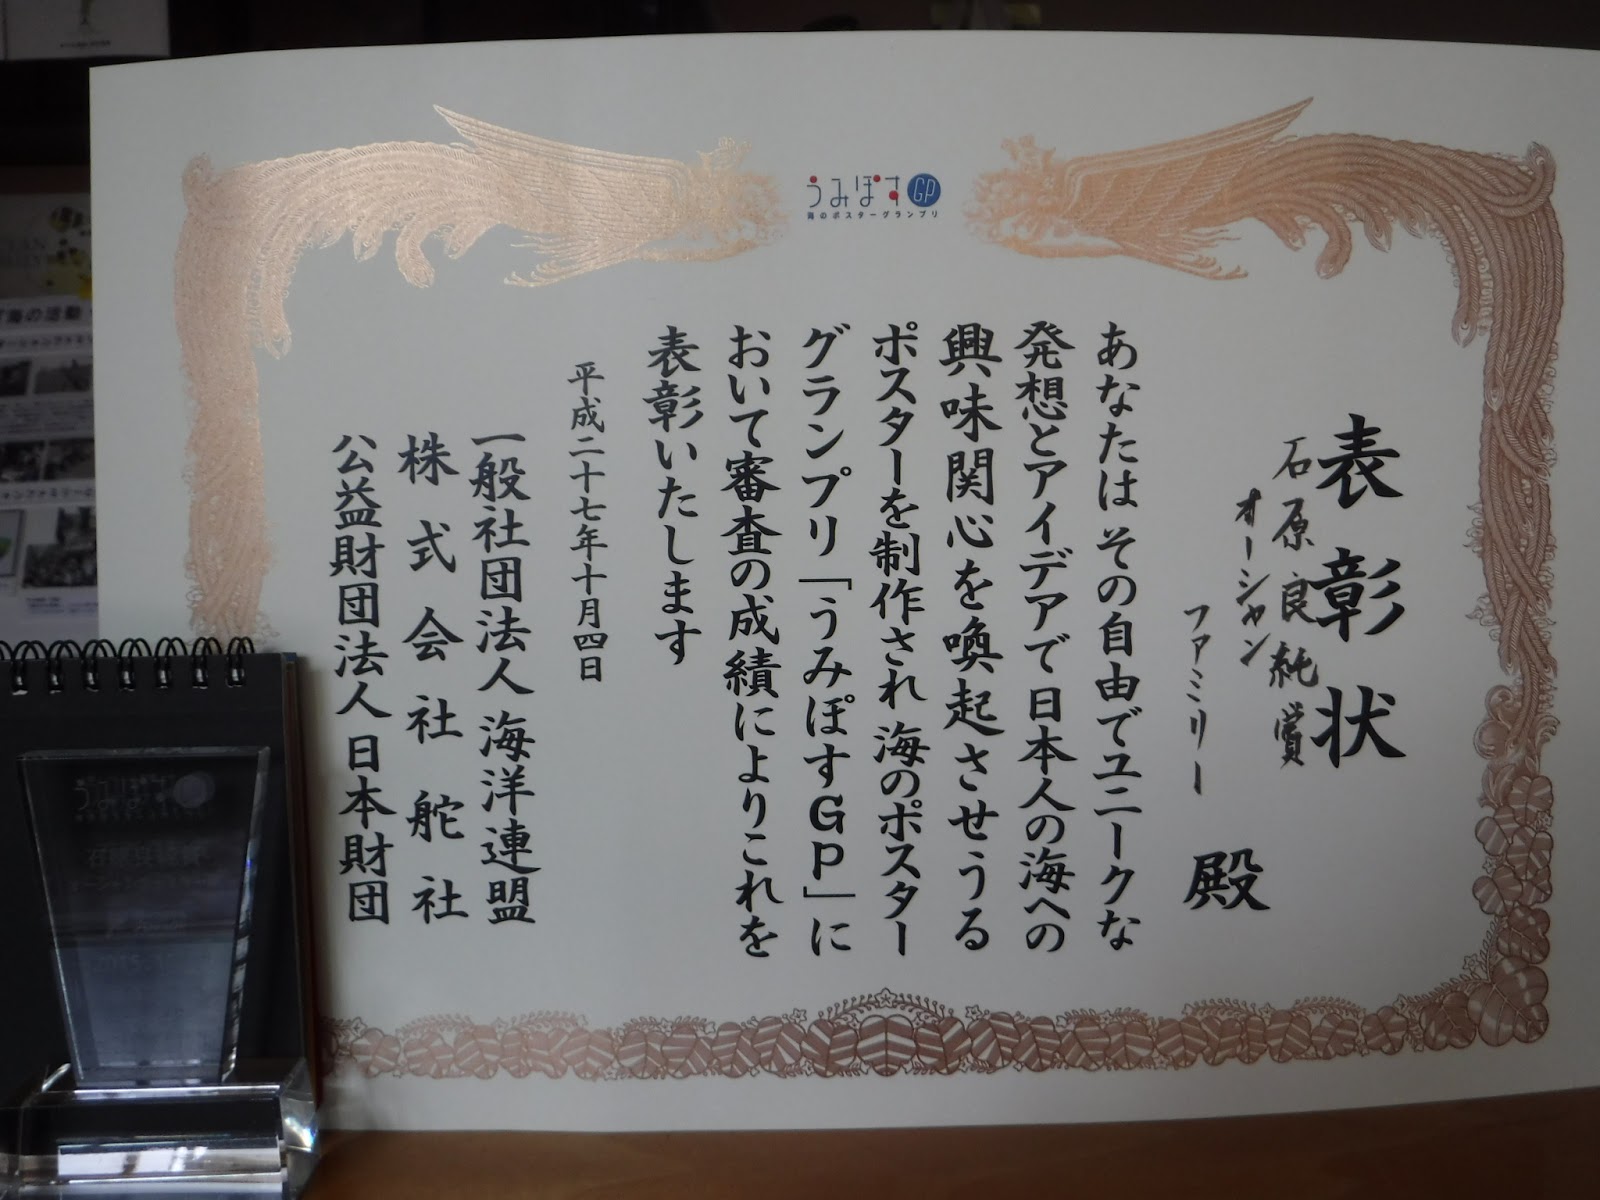 うみぽす GP
海のポスターグランプリ
表彰状
石原良純賞
オーシャン
ファミリー 殿
あなたは その自由でユニークな
発想とアイデアで日本人の海への
興味関心を喚起させうる
ポスターを制作され 海のポスター
グランプリ「うみぽすGP」に
おいて審査の成績によりこれを
表彰いたします
平成二十七年十月四日
一般社団法人 海洋連盟
株式会社舵社
公益財団法人 日本財団
海の活動
うみぽす